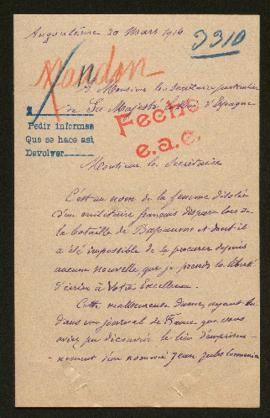 Angoulême 30 Mars 1916
3310
Mandon
A Monsieur le Secrétaire particulier
de Sa Majesté le Roi d'Espagne
1
Pedir informes
Que se hace así
Devolver
Fecho
e.a.c.
Monsieur le Secrétaire
C'est au nom de la femme désolée
d'un militaire français disparu lors de
la bataille de Bapaume et dont il
a été impossible de se procurer depuis
aucune nouvelle que je prends la liberté
d'écrire à Votre Excellence.
Cette malheureuse dame, ayant lu
dans un journal de France que vous
aviez pu découvrir le lieu d'emprison-
nement d'un nommé Jean Jules